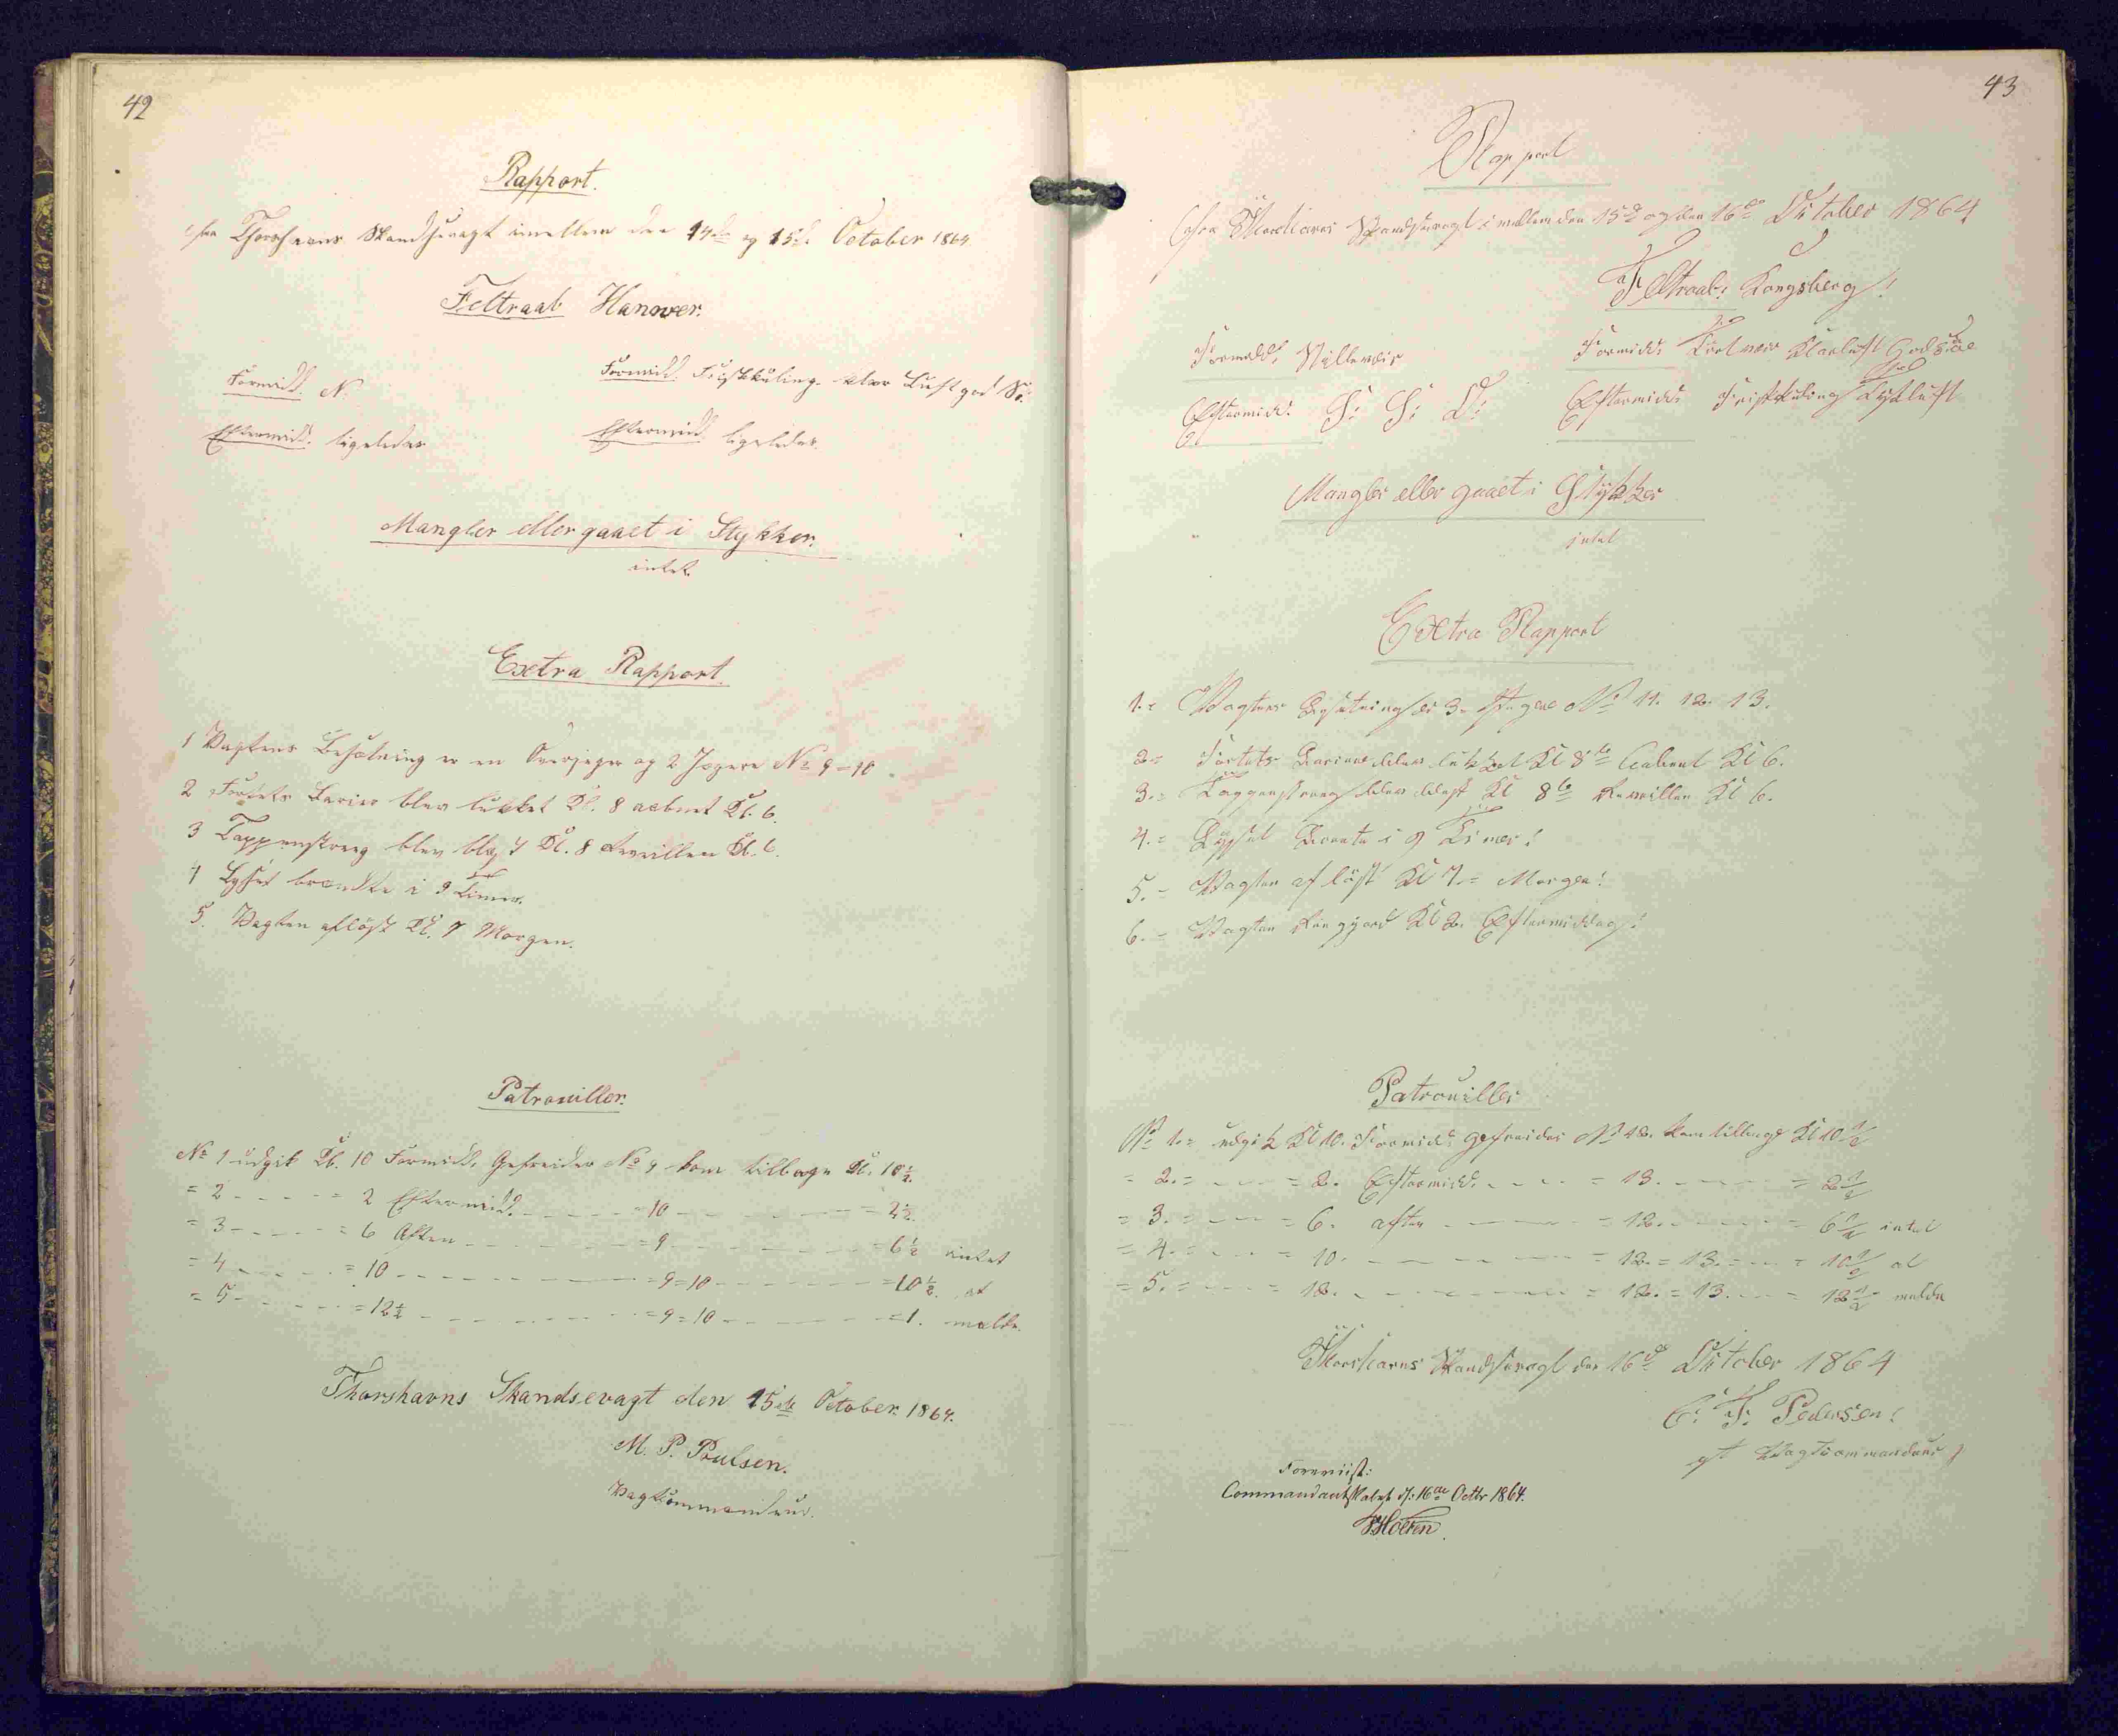 42
Rapport.
fra Thorshavns Skandsevagt imellem den 14de og 15de October 1864.
Feltraab Hannover.
Formidd. N. Formidd. Friskkuling klar Luft god Sö.
Eftermidd. ligeledes Eftermidd. ligeledes.
Mangler eller gaaet i Stykker.
intet.
Extra Rapport.
1 Vagtens Besætning er en Overjæger og 2 Jægere No 9-10
2 Fortets Barier blev lukket Kl. 8 aabnet Kl. 6.
3 Tappenstreg blev blæst Kl. 8 Reveillen Kl. 6.
4 Lyset brændte i 9 Timer.
5. Vagten aflöst Kl. 7 Morgen.
Patrouiller.
No 1 udgik Kl. 10 Formidd. Gefreider No 9 kom tilbage Kl. 10½.
= 2 - - - - = 2 Eftermidd. - - - - - 10 - - - - - = 2½.
= 3 - - - - = 6 Aften - - - - - = 9 - - - - - = 6½ intet
= 4 - - - - = 10 - - - - - = 9 = 10 - - - - - = 10½. at
= 5 - - - - = 12½ - - - - - = 9 = 10 - - - - - = 1. melde.
Thorshavns Skandsevagt den 15de October 1864.
M. P. Poulsen.
Vagtcommandeur.
43
Rapport
fra Thorshavns Skandsevagt imellem den 15de og den 16de October 1864
Feltraab: Kongsberg!
Formidd: Stilleveir Formidd: Klarluft God Söe
Eftermidd: S: S: O: Eftermidd: Friskkuling Tykluft
Mangler eller gaaet i Stykker
intet
Extra Rapport
1.= Vagtens Besætning er 3. Jægere No 11. 12. 13.
2.= Fortets Bariere blev lukket Kl 8te aabent Kl 6.
3.= Tappenstreg blev blæst Kl 8te Reveillen Kl 6.
4.= Lyset Brænte i 9 Timer!
5.= Vagten aflöst Kl 7.= Morgen!
6.= Vagten Rengjord Kl 2. Eftermiddag!
Patrouiller
No 1.= udgik Kl 10. Formidd: gefreider No 12. kom tilbage Kl 10½
= 2.= - - - = 2. Eftermidd. - - - = 13. - - - = 2½
= 3.= - - - = 6. aften - - - = 12. - - - = 6½ intet
= 4.= - - - = 10. - - - = 12.= 13.= - - = 10½ at
= 5.= - - - = 12. - - - = 12.= 13. - - = 12½ melde
Thorshavns Skandsevagt den 16de October 1864
C: F: Pedersen!
Vagtcommandeur
Foreviist:
Commandantskabet d: 16de Octbr 1864.